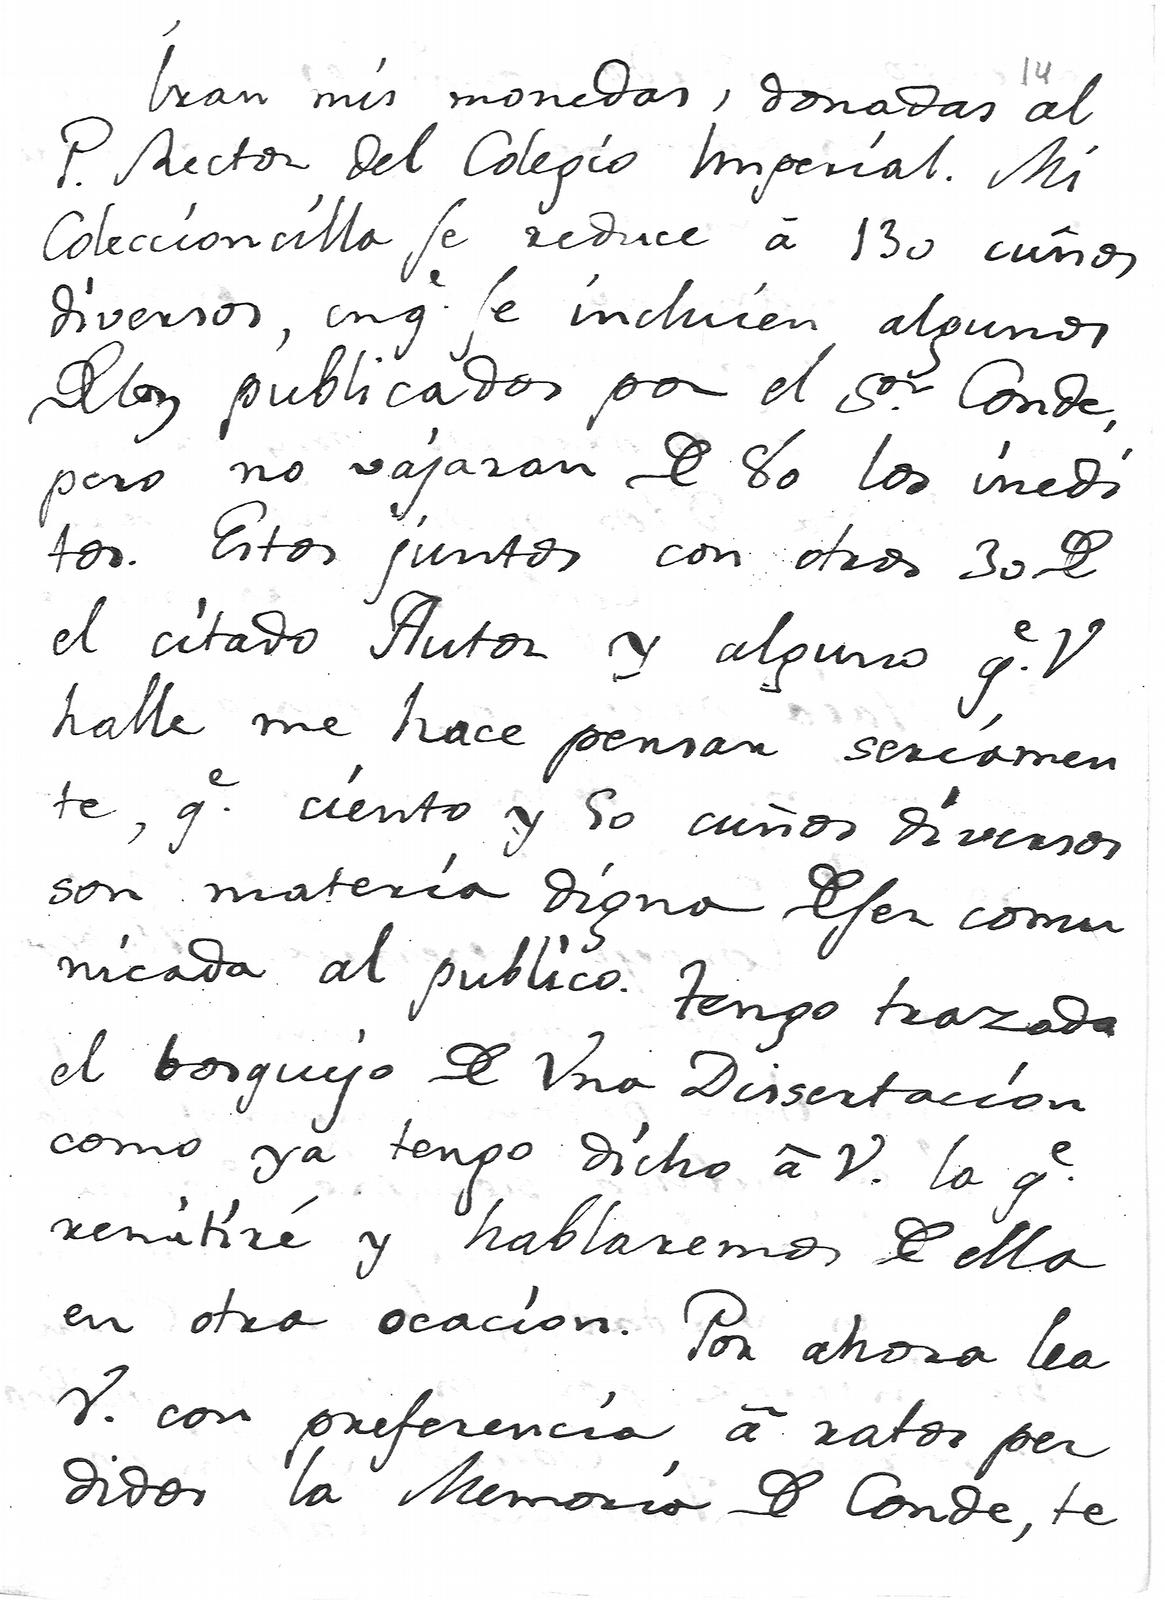 14
Iran mis monedas, donadas al
P. Rector del Colegio Imperial. Mi
Coleccioncilla se reduce â 130 cuños
diversos, en q.e se incluien algunos
De los publicados por el S.or Conde,
pero no vajaran De 80 los inedi
tos. Estos juntos con otros 30 De
el citado Autor y alguno q.e V
halle me hace pensar seriamen
te, q.e ciento y 50 cuños diversos
son materia digna De ser comu
nicada al publico. Tengo trazada
el bosquejo De Vna Dissertacion
como ya tengo dicho â V. la q.e
remitiré y hablaremos De ella
en otra ocacion. Por ahora lea
V. con preferencia â ratos per
didos la Memoria De Conde, te